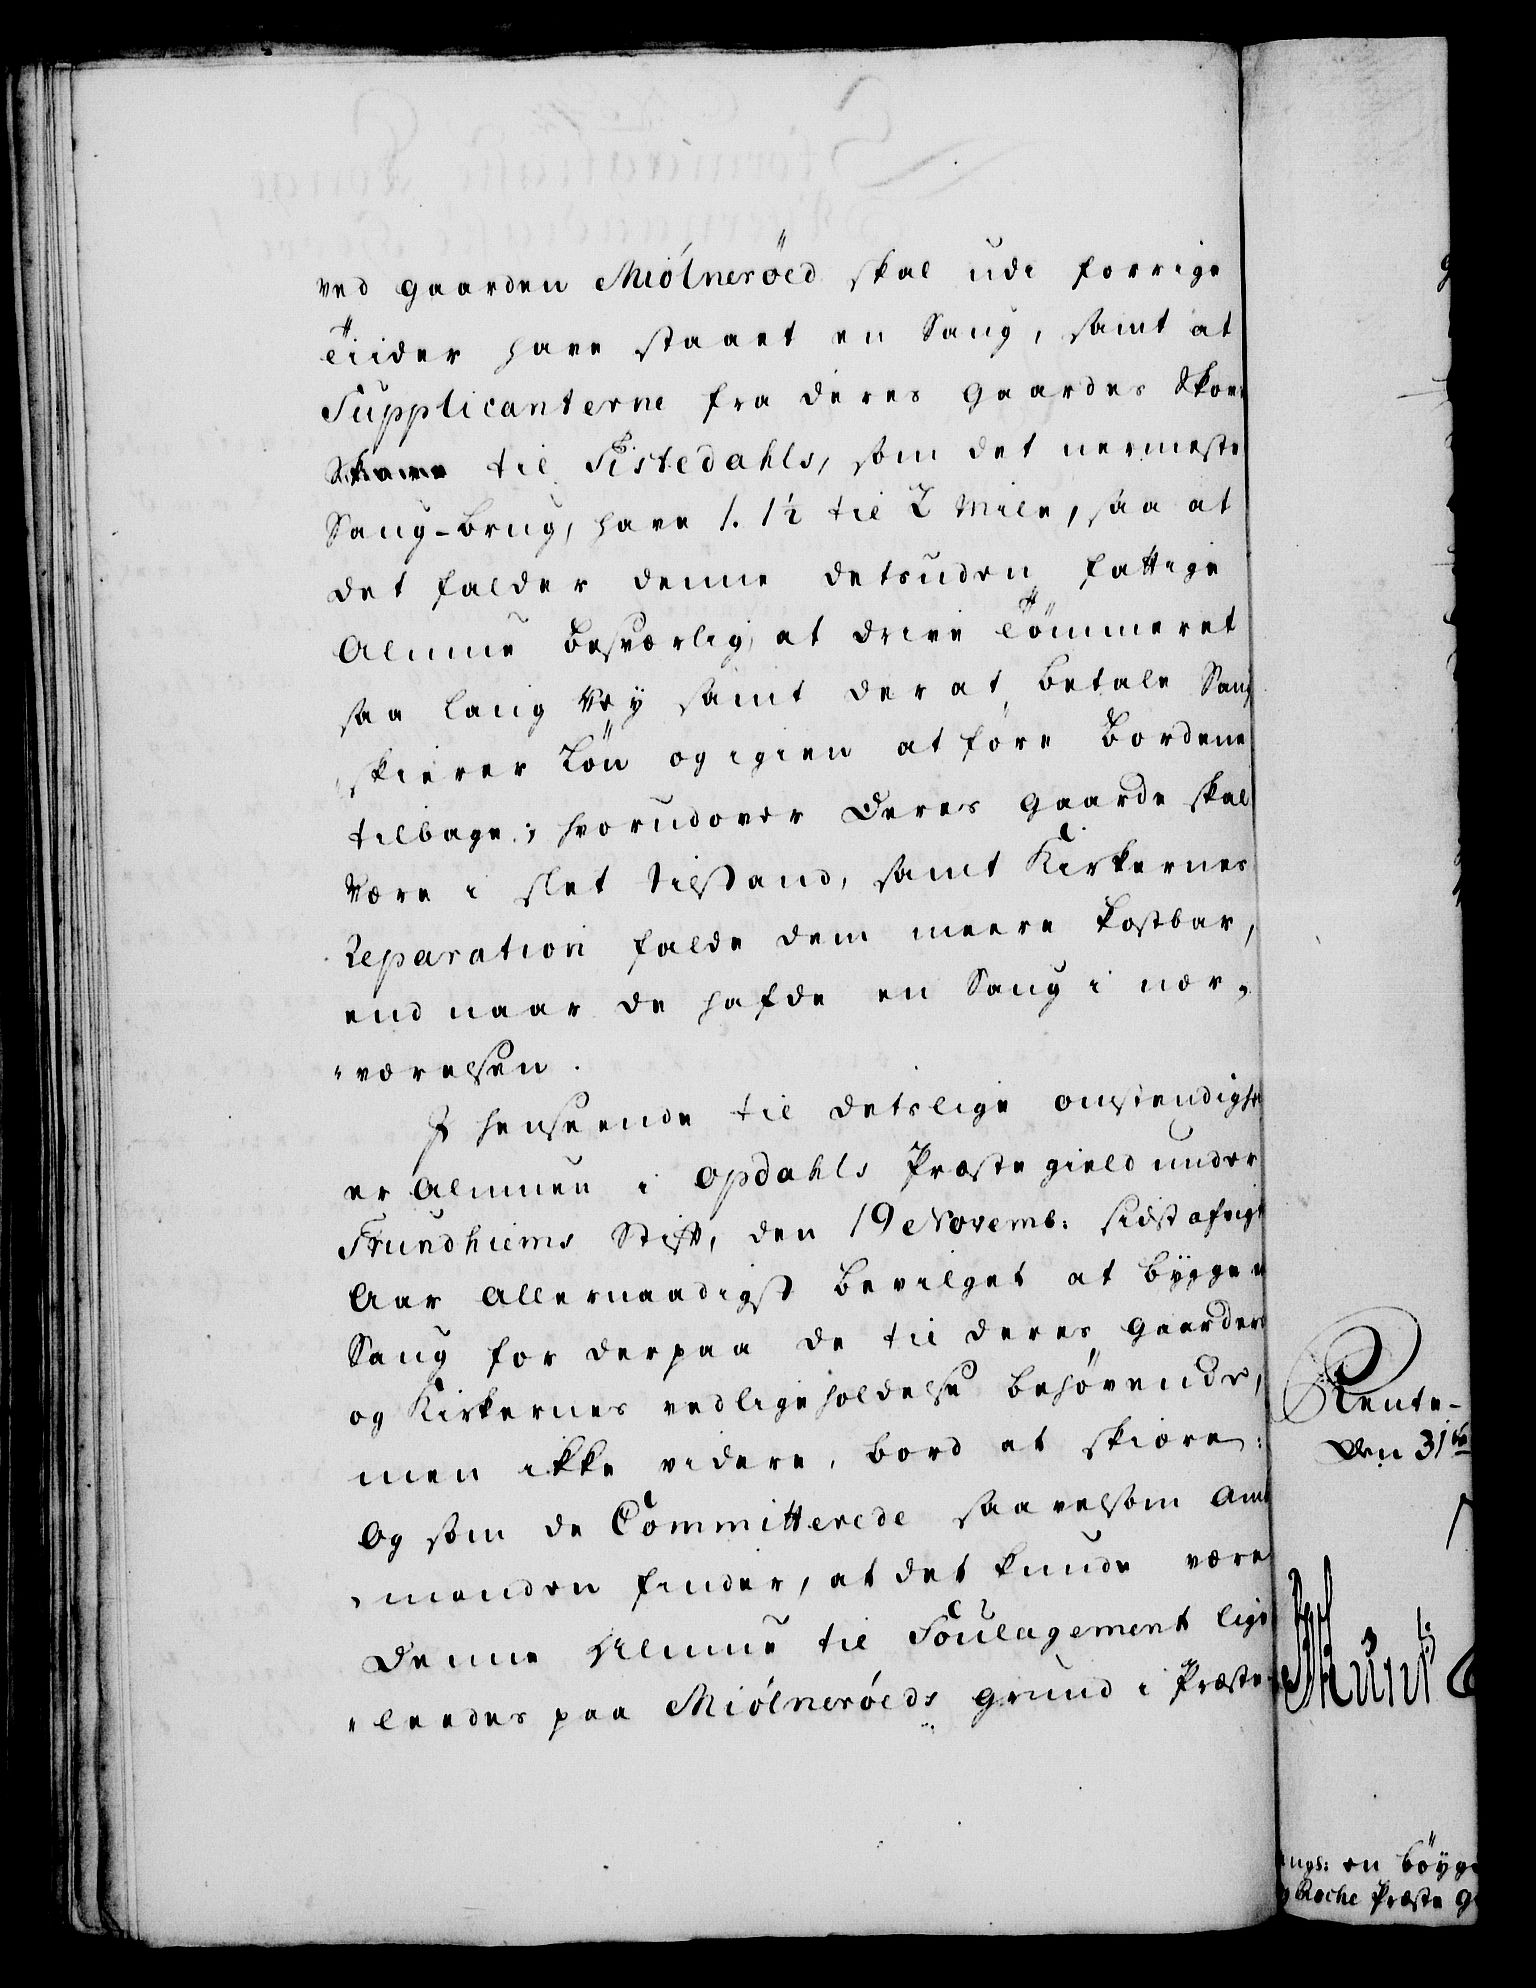 ved gaarden Miólneröed skal udi forrige
Tiider have staaet en Saug, samt at
Supplicanterne fra deres Gaardes Skove
til Tistedahls, som det nermeste
Saug-brug, have 1. 1½ til 2 Mile, saa at
det falder denne desuden fattige
Almue besværlig, at drive Tömmeret
saa lang Vey samt der at betale Saug
skierer Lön og igien at före Bordene
tilbage; hvorudover deres gaarde skal
være i slet tilstand, samt Kirkernes
Reparation falde dem meere kostbar,
end naar de hafde en Saug i nær-
værelsen.
I henseende til detslige omstendighe
er Almuen i Opdahls Præstegield under
Trundhiems Stift, den 19 Novemb: sidstafvigt
Aar Allernaadigst bevilget at bygge en
Saug for derpaa de til deres gaarders
og Kirkernes vedligeholdelse behøvende,
men ikke videre, bord at skiære:
Og som de Committerede saavelsom Amt
manden finder, at det kunde være
denne Almue til Soulagement lige
leedes paa Miólneróeds grund i Præste-
Rente-
den 31te
ngs: en böyg
Præste g